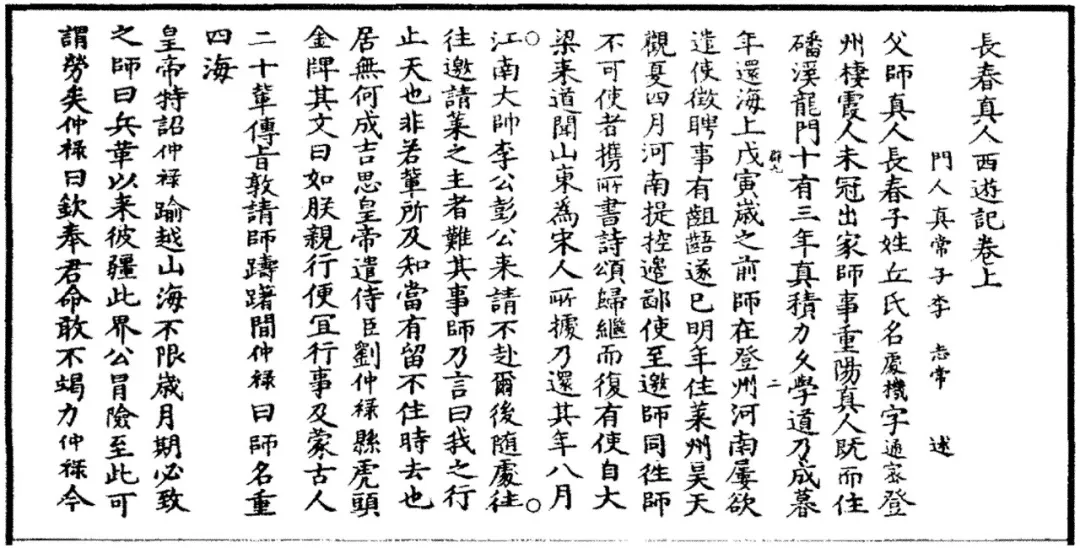 長春真人西遊記卷上
門人真常子李志常述
父師真人長春子姓丘氏名處機字通密登
州棲霞人未冠出家師事重陽真人既而住
磻溪龍門十有三年真積力久學道乃成暮
年還海上戊寅歲之前師在登州河南屢欲
遣使徵聘事有齟齬遂已明年住萊州昊天
觀夏四月河南提控邊鄙使至邀師同往師
不可使者携所書詩頌歸繼而復有使自大
梁来道聞山東為宋人所據乃還其年八月
江南大帥李公彭公来請不赴爾後隨處往
往邀請萊之主者難其事師乃言曰我之行
止天也非若輩所及知當有留不住時去也
居無何成吉思皇帝遣侍臣劉仲祿縣虎頭
金牌其文曰如朕親行便宜行事及蒙古人
二十輩傳旨敦請師躊躇間仲祿曰師名重
四海
皇帝特詔仲祿踰越山海不限歲月期必致
之師曰兵革以来彼疆此界公冒險至此可
謂勞矣仲祿曰欽奉君命敢不竭力仲祿今